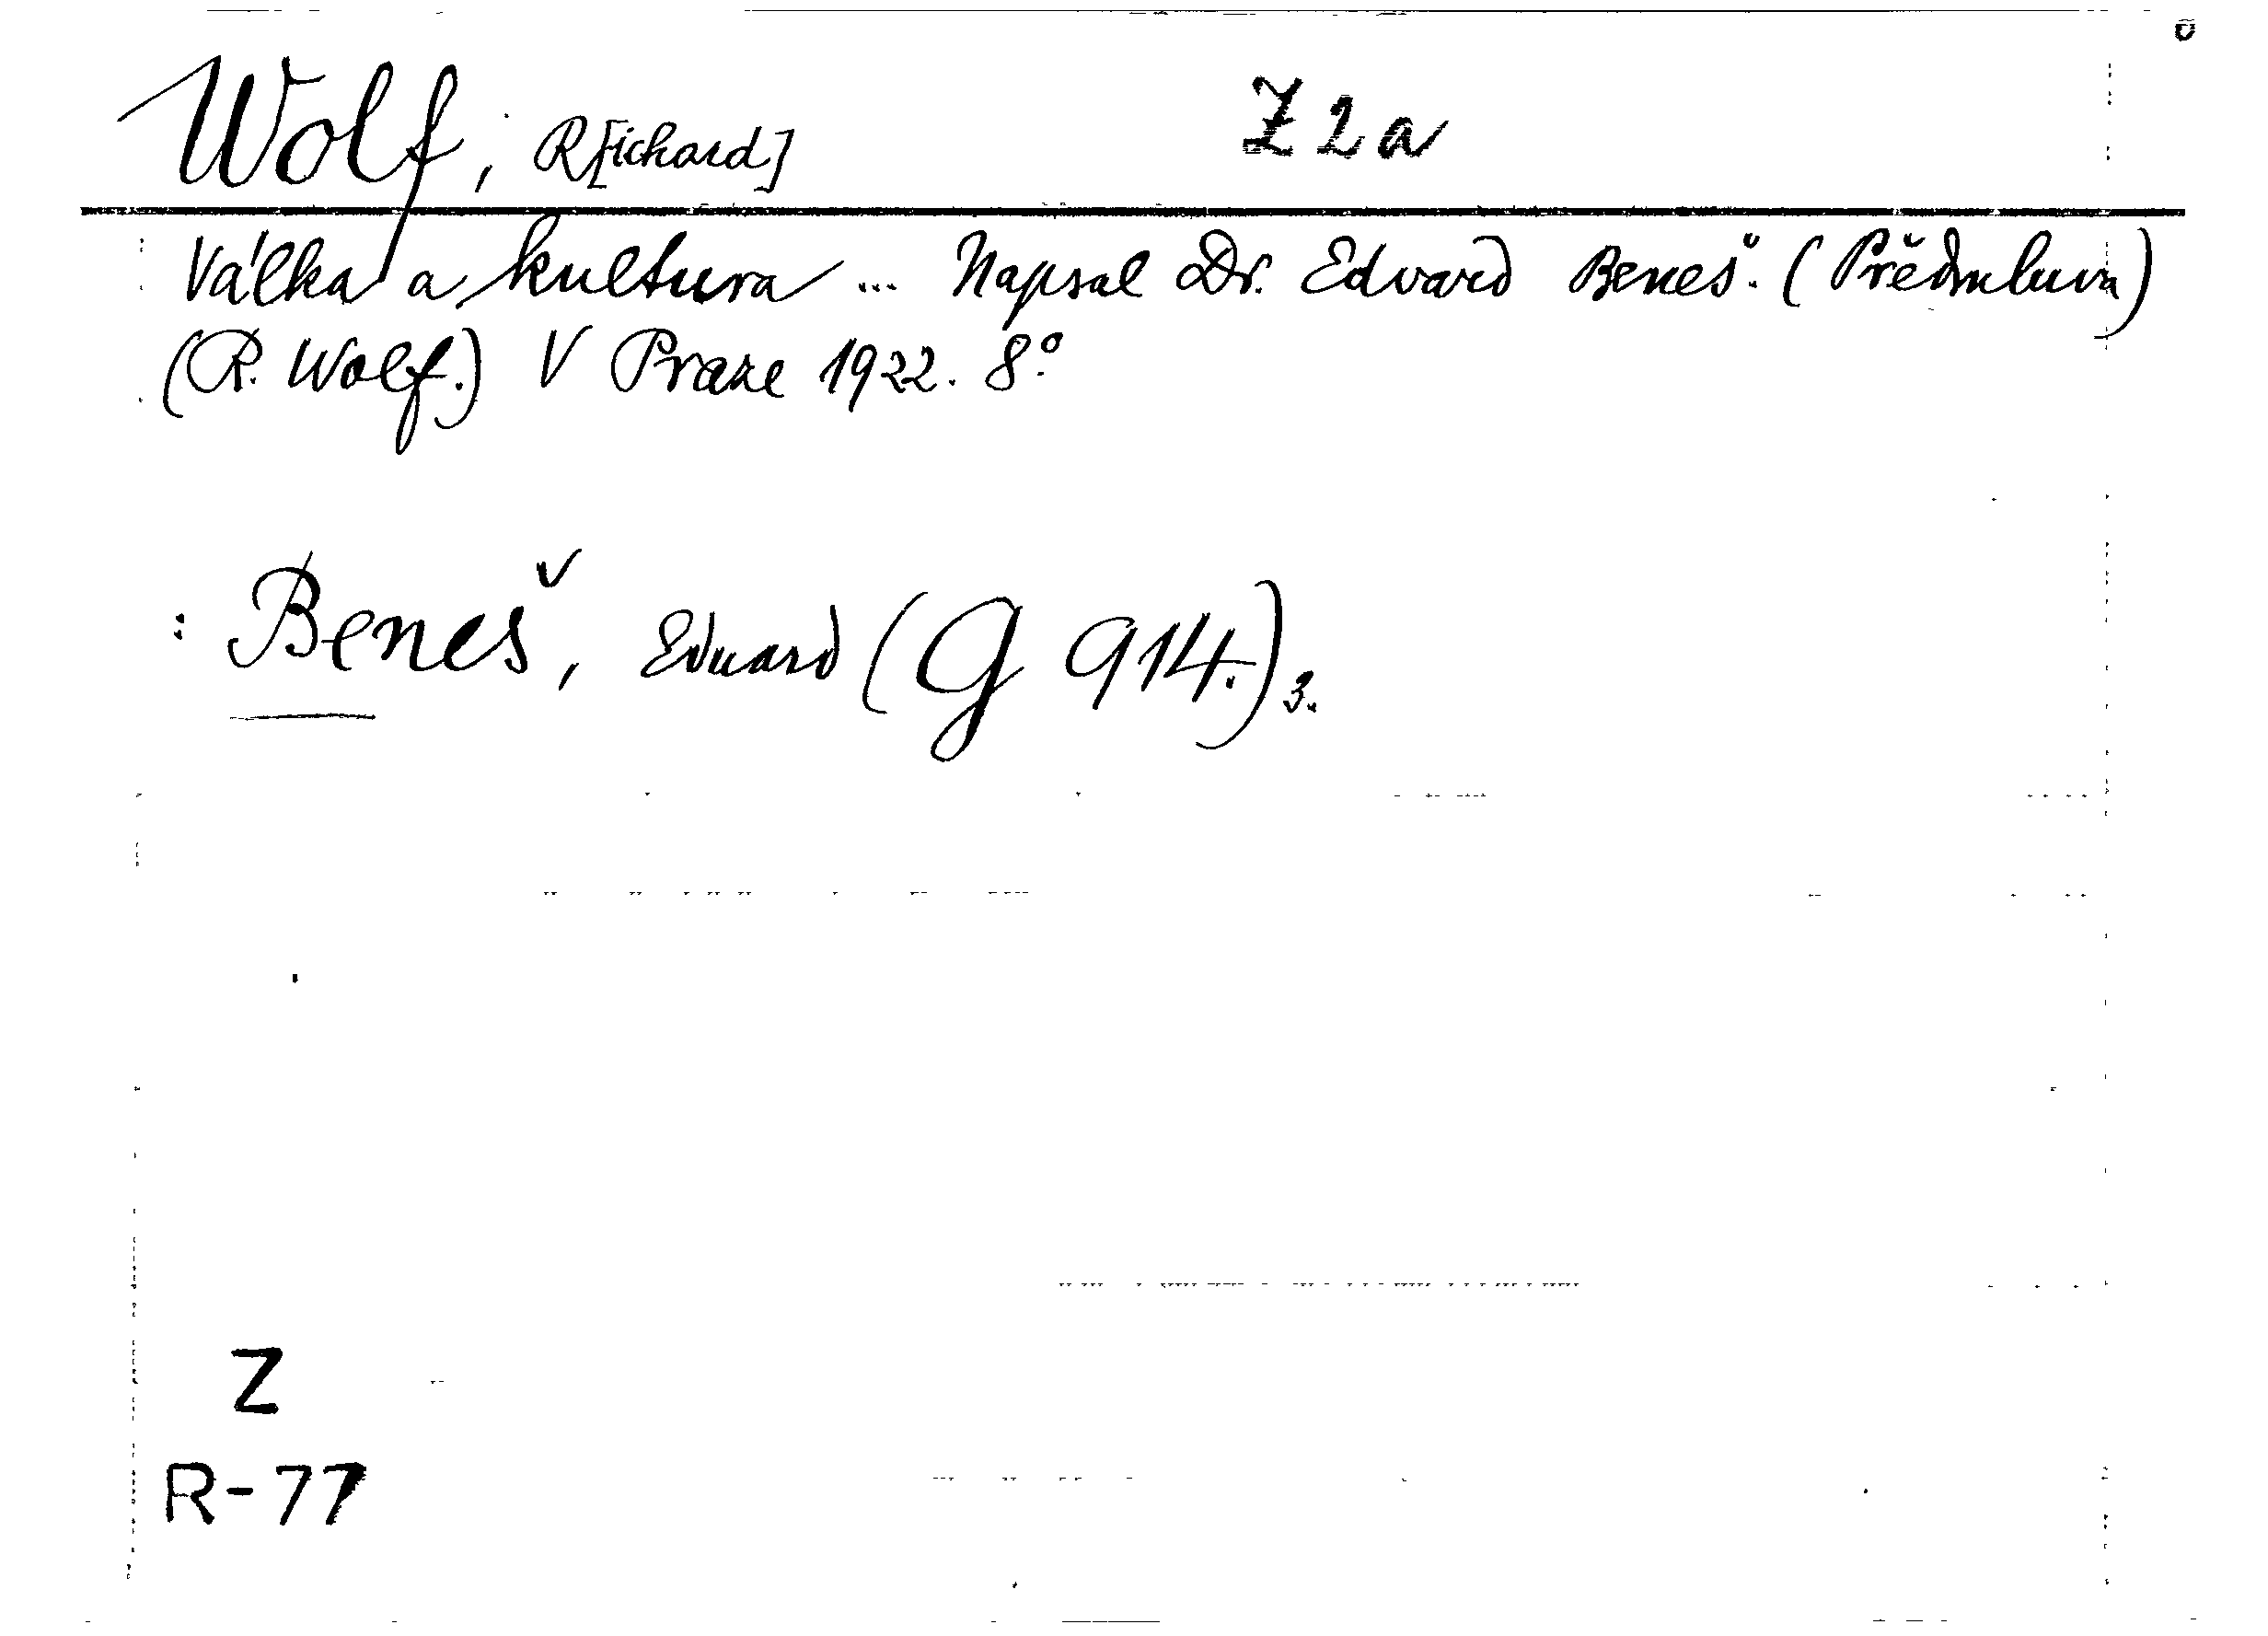 Wolf, R[ichard] Z2a
Válka a kultura ... Napsal Dr. Edvard Beneš. (Předmluva)
(R. Wolf.) V Praze 1922. 8°
: Beneš, Eduard (G 914.) 3.
Z
R-77